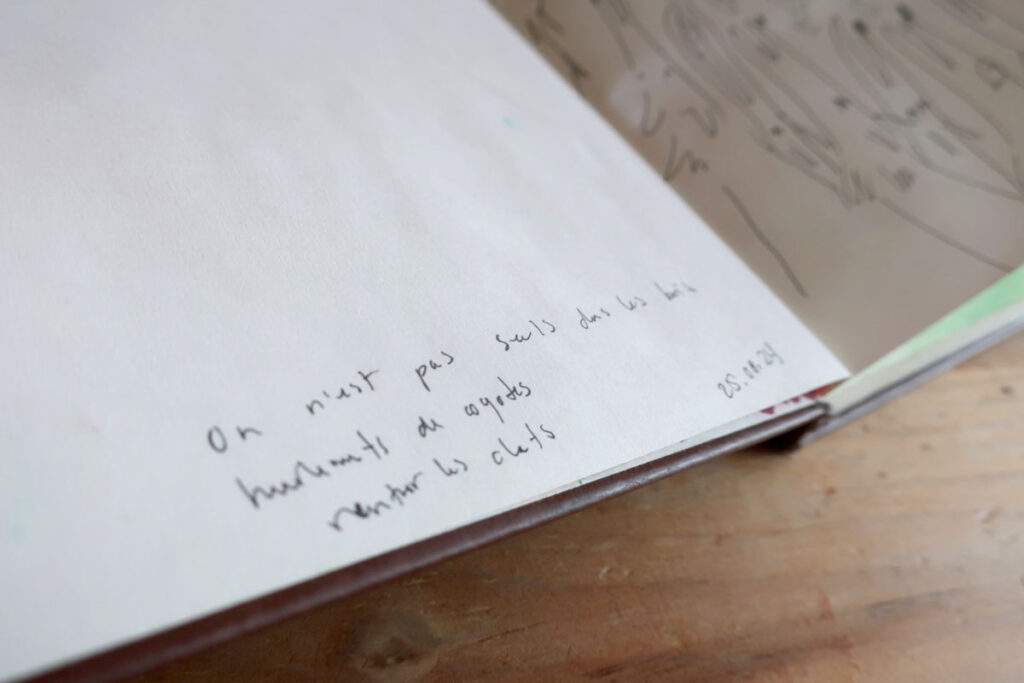 On n'est pas seuls dans les bois
hurlements de coyotes
rentrer les chats
25.01.24